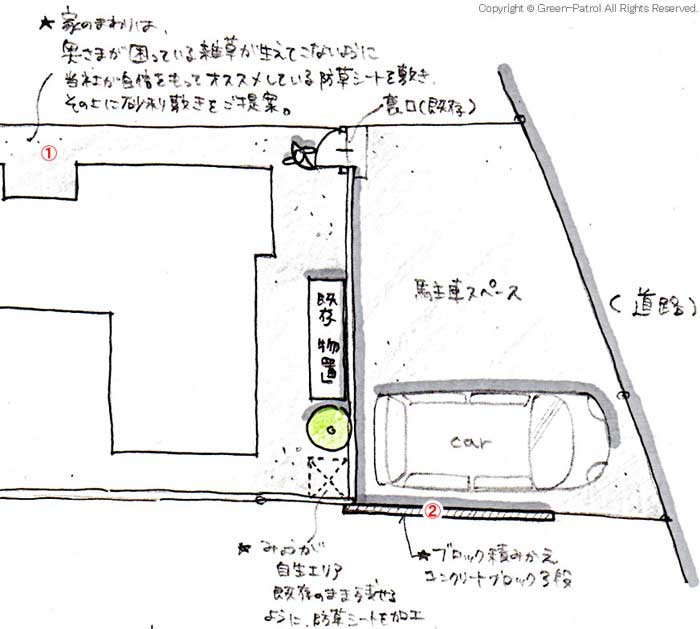 Copyright © Green-Patrol All Rights Reserved.
★ 家のまわりは、
奥さまが困っている雑草が生えてこないように
当社が自信をもってオススメしている防草シートを敷き、
その上に砂利敷きをご提案。
裏口(既存)
①
駐車スペース
(道路)
既存物置
car
②
★ みょうが
自生エリア
既存のまま残せる
ように、防草シートを加工
★ ブロック積みかえ
コンクリートブロック3段